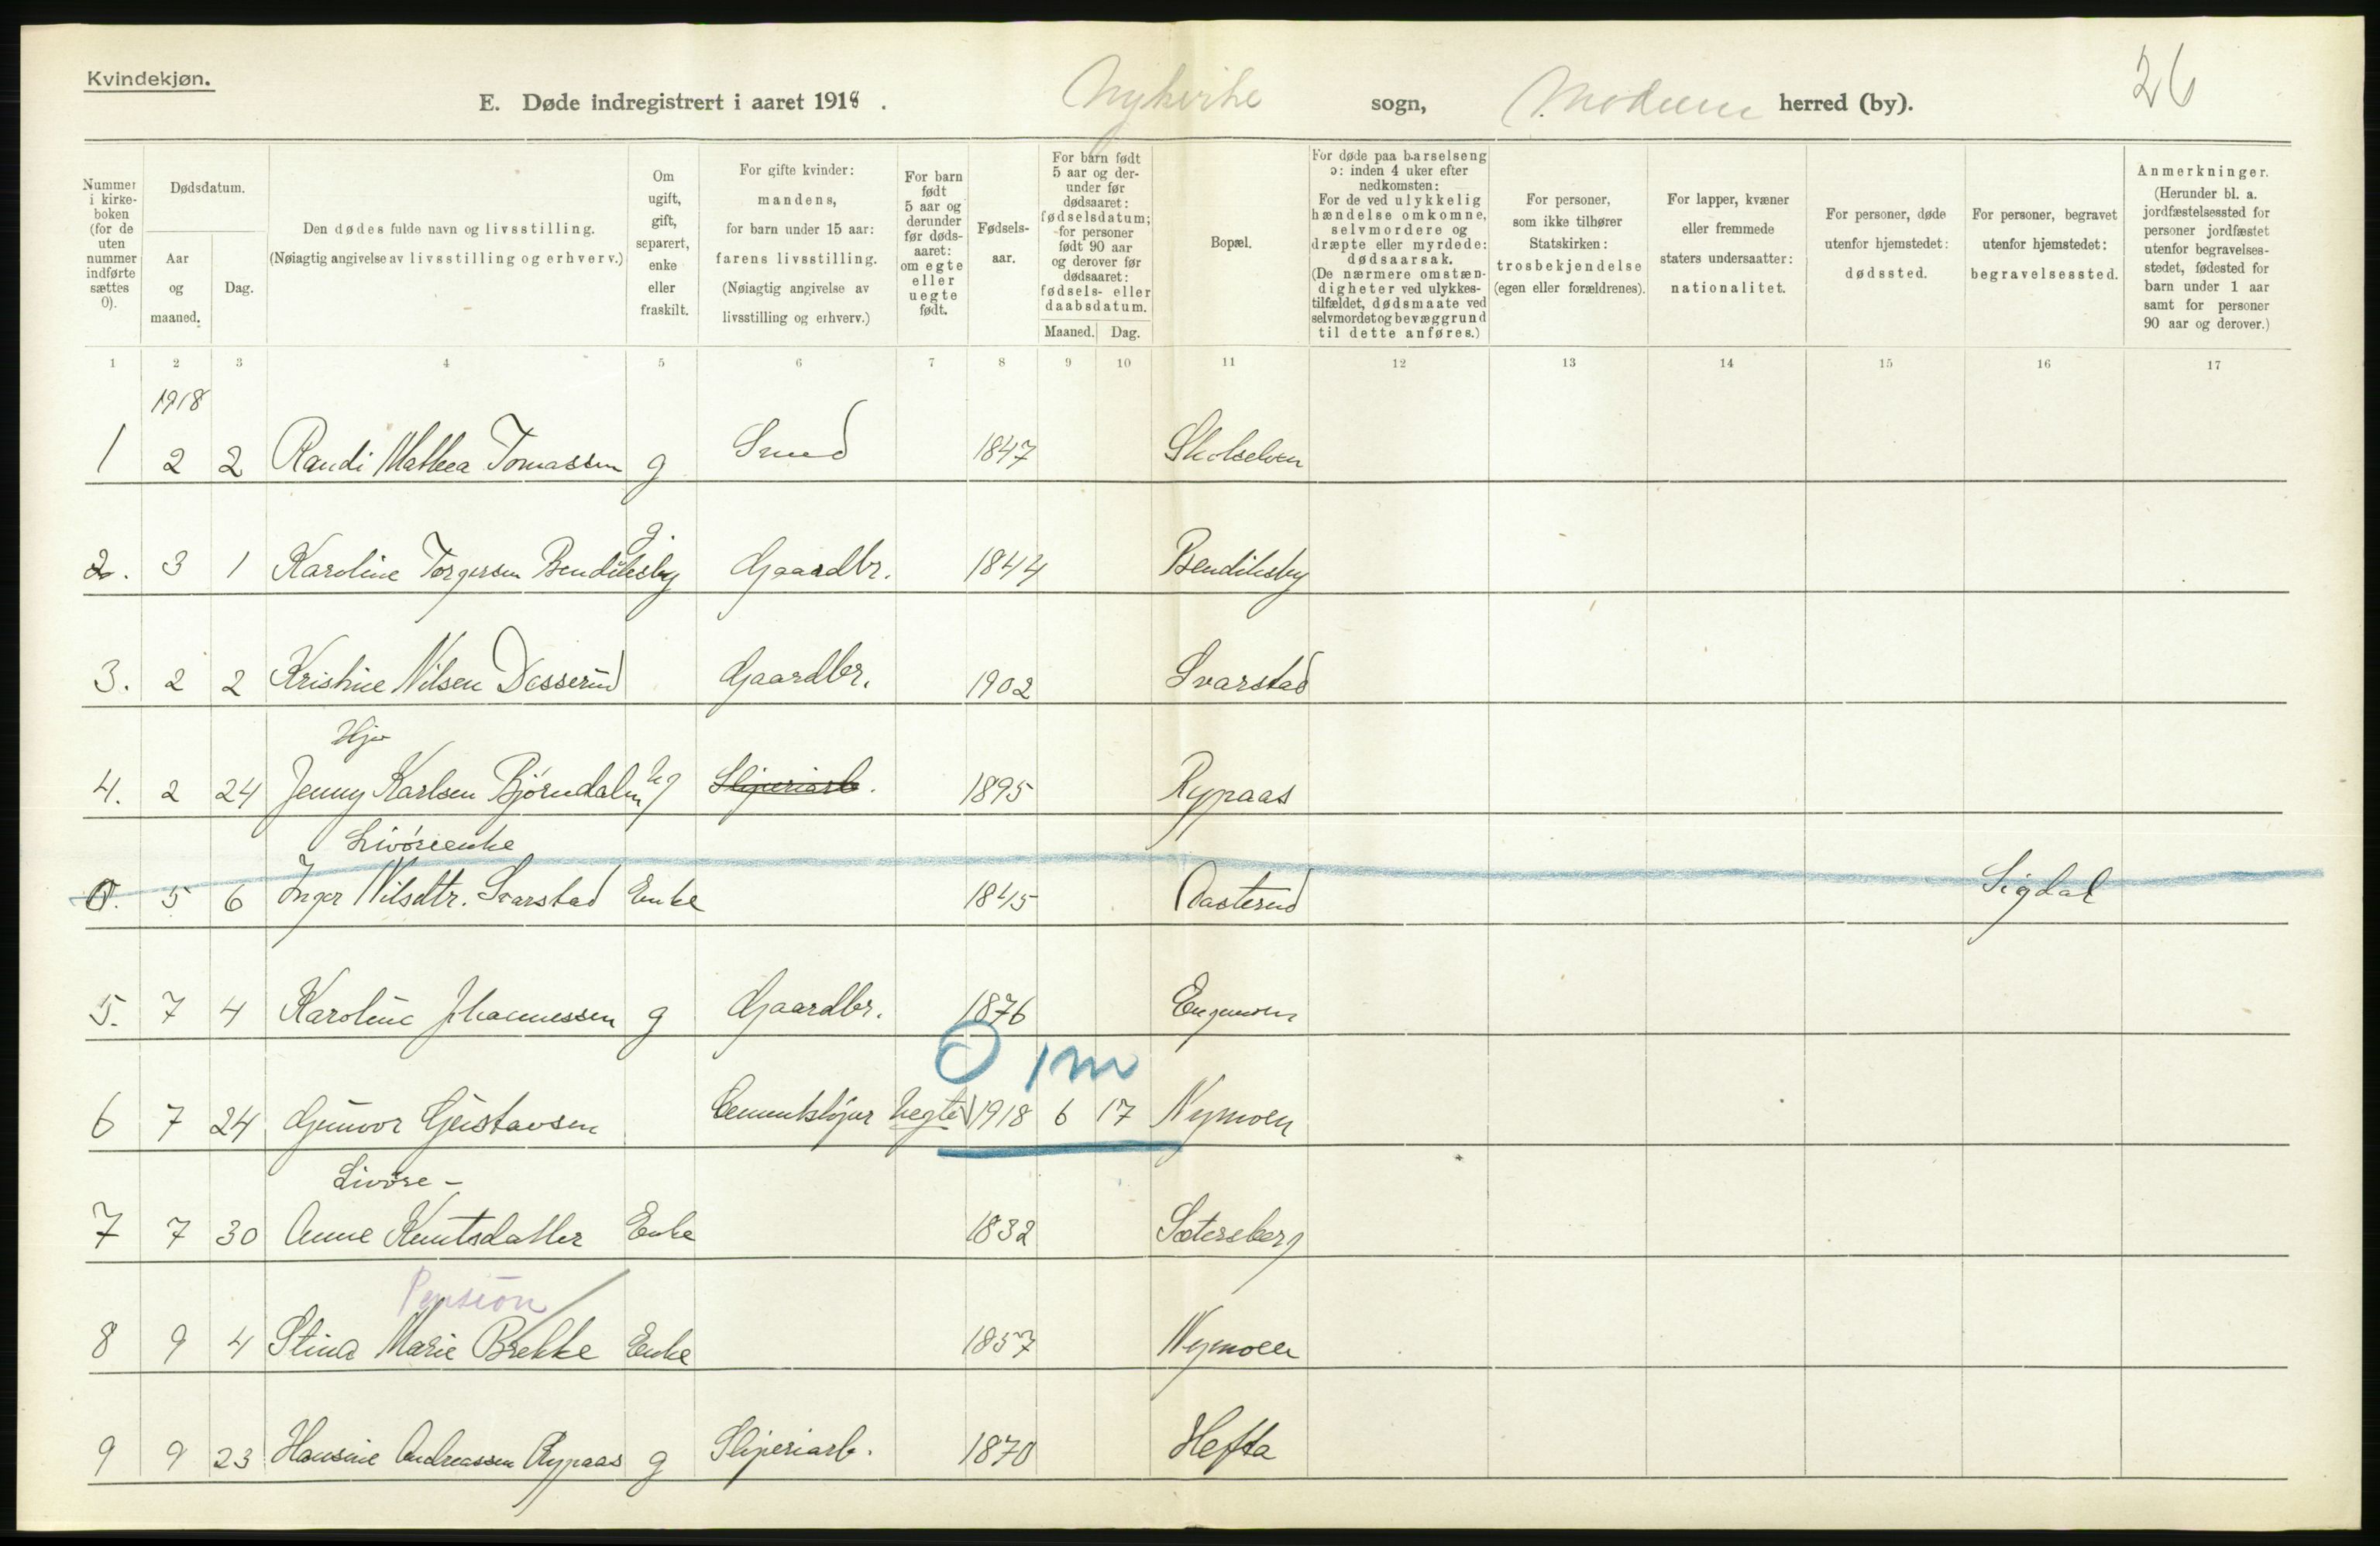 Kvindekjøn.
E. Døde indregistrert i aaret 1918.
Nykirke sogn, Modum herred (by).
26
Nummer i kirkeboken (for de uten nummer indførte sættes 0).
Dødsdatum.
Aar og maaned.
Dag.
Den dødes fulde navn og livsstilling.
(Nøiagtig angivelse av livsstilling og erhverv.)
Om ugift, gift, separert, enke eller fraskilt.
For gifte kvinder: mandens, for barn under 15 aar: farens livsstilling.
(Nøiagtig angivelse av livsstilling og erhverv.)
For barn født 5 aar og derunder før dødsaaret: om egte eller uegte født.
Fødselsaar.
For barn født 5 aar og derunder før dødsaaret: fødselsdatum; for personer født 90 aar og derover før dødsaaret: fødsels- eller daabsdatum.
Maaned. Dag.
Bopæl.
For døde paa barselseng ɔ: inden 4 uker efter nedkomsten:
For de ved ulykkelig hændelse omkomne, selvmordere og dræpte eller myrdede: dødsaarsak.
(De nærmere omstændigheter ved ulykkestilfældet, dødsmaate ved selvmordet og bevæggrund til dette anføres.)
For personer, som ikke tilhører Statskirken: trosbekjendelse (egen eller forældrenes).
For lapper, kvæner eller fremmede staters undersaatter: nationalitet.
For personer, døde utenfor hjemstedet: dødssted.
For personer, begravet utenfor hjemstedet: begravelsessted.
Anmerkninger.
(Herunder bl. a. jordfæstelsessted for personer jordfæstet utenfor begravelsesstedet, fødested for barn under 1 aar samt for personer 90 aar og derover.)
1 2 3 4 5 6 7 8 9 10 11 12 13 14 15 16 17
1918
1 2 2 Randi Mathea Tomassen g Smed 1847 Skotselven
2. 3 1 Karoline Torgersen Bendiksby g. Gaardbr. 1844 Bendiksby
3. 2 2 Kristine Nilsen Dosserud Gaardbr. 1902 Svarstad
Hjo
4. 2 24 Jenny Karlsen Bjørndalen ug Sliperiarb. 1895 Rypaas
Livøreenke
0. 5 6 Inger Nilsdtr. Svarstad Enke 1845 Aasterud Sigdal
5. 7 4 Karoline Johannessen g Gaardbr. 1876 Engemoen
0 1 m
6 7 24 Gunvor Gustavsen Cementstøper uegte 1918 6 17 Nymoen
Livøre-
7 7 30 Anne Knutsdatter Enke 1832 Sætersberg
Pension
8 9 4 Stina Marie Brekke Enke 1857 Nymoen
9 9 23 Hansine Andreassen Rypaas g Sliperiarb. 1870 Hefta